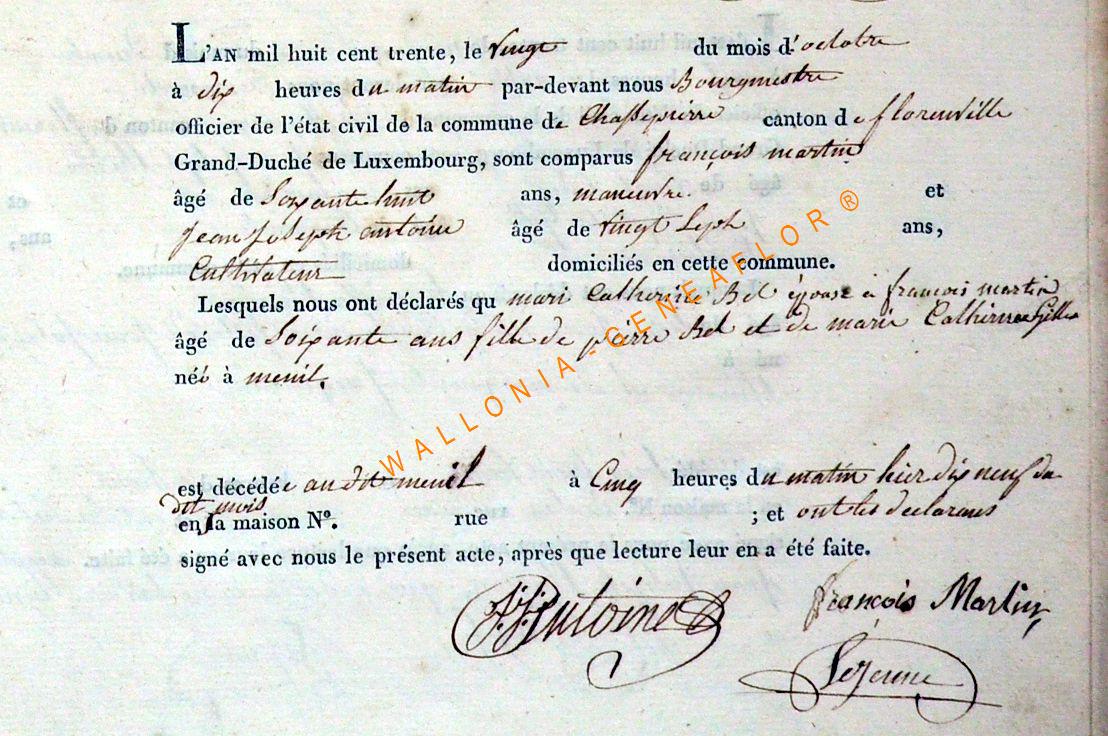 L'AN mil huit cent trente, le vingt du mois d'octobre
à dix heures du matin par-devant nous Bourgmestre
officier de l'état civil de la commune de Chassepierre canton de florenville
Grand-Duché de Luxembourg, sont comparus françois martin
âgé de Soixante huit ans, maneuvre. et
jean joseph antoine âgé de vingt Sept ans,
Cultivateur domiciliés en cette commune.
Lesquels nous ont déclarés qu mari Catherine Bel épouse a françois martin
âgé de Soixante ans fille de pierre Bel et de marie Catherine Gilles
néé à menil.
est décédée au dit menil à Cinq heures du matin hier dix neuf du
dit mois
en sa maison Nº. rue ; et ont les declarans
signé avec nous le présent acte, après que lecture leur en a été faite.
JJ Antoine françois Martin
Lejeune
WALLONIA-GENEAFLOR ®